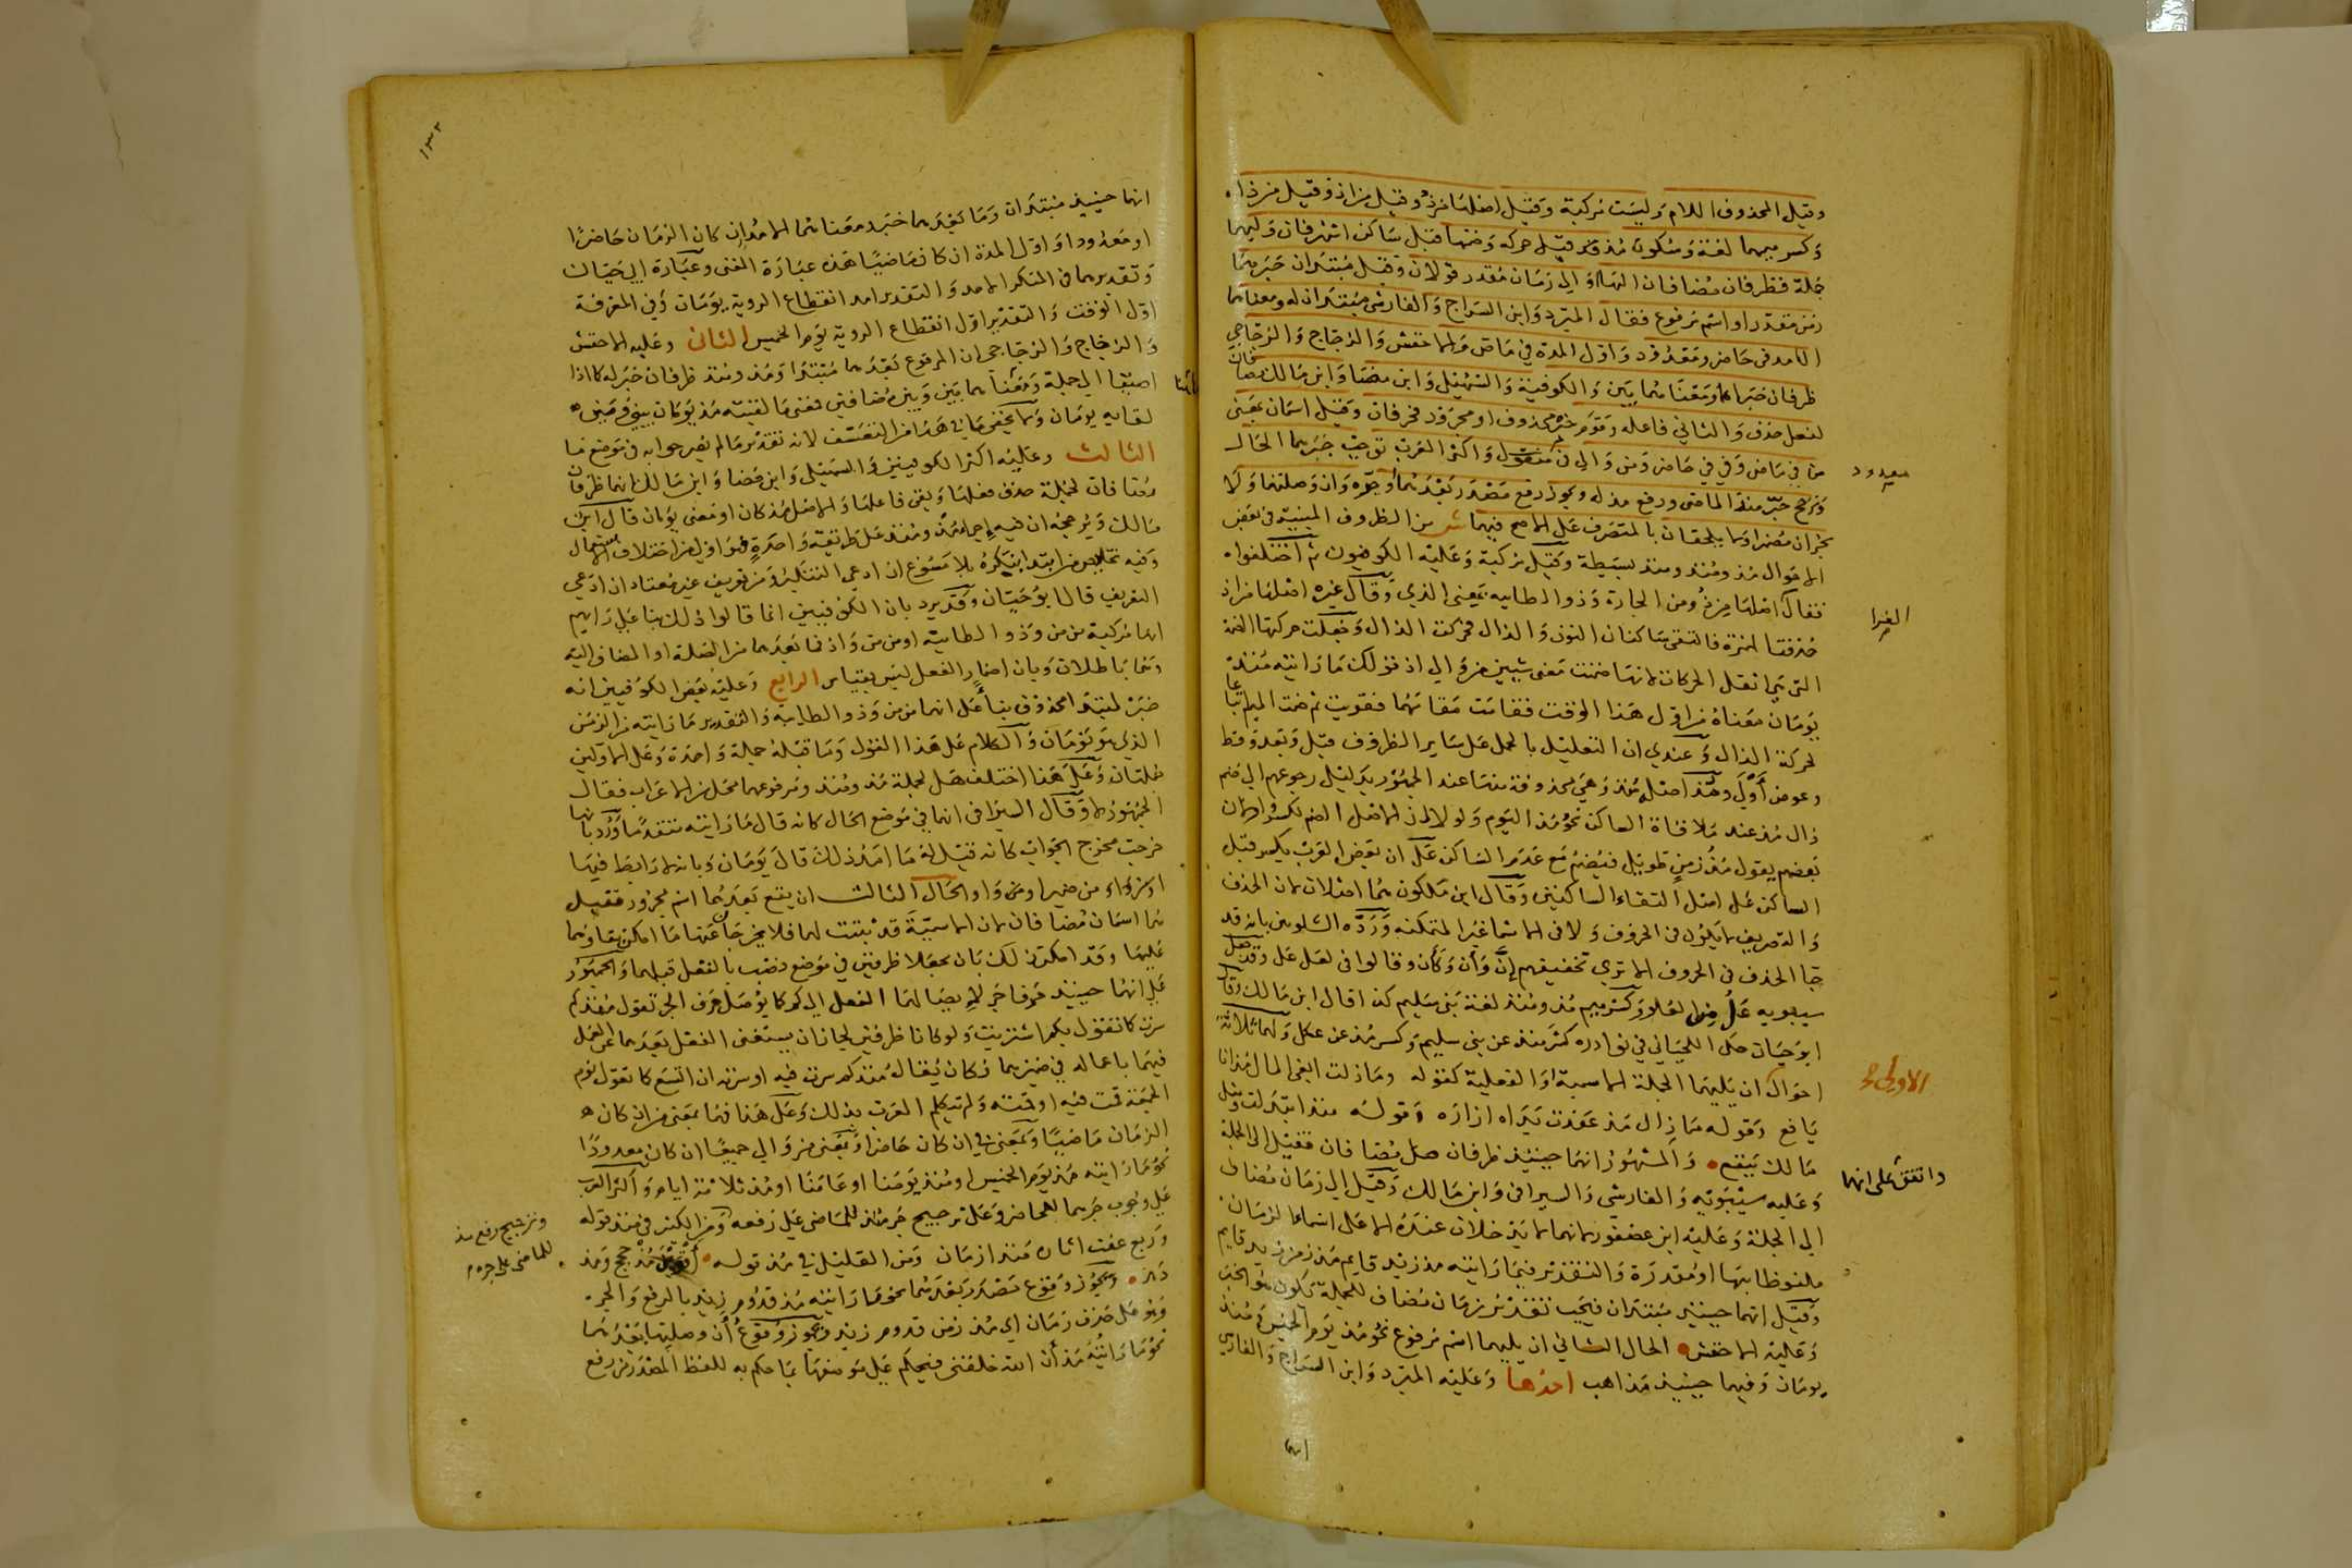 وقيل المحذوف اللام وليست مركبة وقيل اصلها من ذو وقيل من اذ وقيل من ذا
وكسر ميمهما لغة وسكون مذ قبل حركة وضمها قبل ساكن اشهر فان وليهما
جملة فظرفان مضافان لها او الى زمان مقدر قولان وقيل مبتدان خبرهما
زمن مقدر او اسم مرفوع فقال المبرد وابن السراج والفارسي مبتدان له ومعناهما
الامد في حاضر ومعدود واول المدة في ماض والاخفش والزجاج والزجاجي
ظرفان خبرا له ومعناهما بين وبين والكوفية والسهيلي وابن مضا وابن مالك مضافان
لفعل حذف والثاني فاعله وقوم خبر محذوف او مجرور فحرفان وقيل اسمان بمعنى
من في ماض وفي في حاض ومن والى في
معدود
واكثر العرب توجب جرهما الحال
وترجح جر منذ الماضي ورفع مذ له ويجوز رفع مصدر بعدهما وجره وان وصلتها ولا
يجران مضمرا ولا يلحقان بالمتصرف على الاصح فيهما ش من الظروف المبنية في بعض
الاحوال مذ ومنذ ومنذ بسيطة وقيل مركبة وعليه الكوفيون ثم اختلفوا
فقال
الفرا
اصلها من ذو من الجارة وذو الطاييه بمعنى الذي وقال غيره اصلها من اذ
حذفت الهمزة فالتقى ساكنان النون والذال فحركت الذال وجعلت حركتها الضمة
التي هي اثقل الحركات لانها ضمنت معنى شيين من والى اذ قولك ما رايته منذ
يومان معناه من اول هذا الوقت فقامت مقامهما فقويت ثم ضمت الميم اتباعا
لحركة الذال وعندي ان التعليل بالحمل على ساير الظروف قبل وبعد وقط
وعوض اولى ومنذ اصل مذ وهي محذوفة منها عند الجمهور بدليل رجوعهم الى ضم
ذال مذ عند ملاقاة الساكن نحو مذ اليوم ولولا ان الاصل الضم لكسروا ولان
بعضهم يقول مذ زمن طويل فيضم مع عدم الساكن على ان بعض العرب يكسر قبل
الساكن على اصل التقاء الساكنين وقال ابن ملكون هما اصلان لان الحذف
والتصريف لا يكون في الحروف ولا في الاسما غير المتمكنة ورده الشلوبين بانه قد
جا الحذف في الحروف الا ترى تخفيفهم ان وان وكان وقالوا في لعل عل وقد حمل
سيبويه عل من لعل وكسر ميم مذ ومنذ لغة بني سليم كذا قال ابن مالك وقال
ابو حيان حكى اللحياني في نوادره كسر منذ عن بني سليم وكسر مذ عن عكل ولهما ثلاثة
احوال
الاولى
ان يليهما الجملة الاسمية او الفعلية كقوله وما زلت ابغي المال مذ انا
يافع وقوله ما زال مذ عقدت يداه ازاره وقوله منذ ابتذلت ومثل
مالك ينفع والمشهور انهما حينئذ ظرفان
واتفق على انهما
مضافان فقيل الى الجملة
وعليه سيبويه والفارسي والسيرافي وابن مالك وقيل الى زمان مضاف
الى الجملة وعليه ابن عصفور لانهما لا يدخلان عنده الا على اسماء الزمان
ملفوظا بها او مقدرة والتقدير فيما رايته مذ زيد قايم مذ زمن زيد قايم
وقيل انهما حينئذ مبتدان فيجب تقدير زمان مضاف للجملة يكون هو الخبر
وعليه الاخفش الحال الثاني ان يليهما اسم مرفوع نحو مذ يوم الخميس ومنذ
يومان وفيهما حينئذ مذاهب احدها وعليه المبرد وابن السراج والفارسي
انهما
١٣٢
انهما حينئذ مبتدان وما بعدهما خبر ومعناهما الامد ان كان الزمان حاضرا
او معدودا واول المدة ان كان ماضيا هذه عبارة المغني وعبارة ابي حيان
وتقديرهما في المنكر الامد والتقدير امد انقطاع الروية يومان وفي المعرفة
اول الوقت والتقدير اول انقطاع الروية يوم الخميس الثاني وعليه الاخفش
والزجاج والزجاجي ان المرفوع بعدهما مبتدا ومذ ومنذ ظرفان خبر له كما اذا
اضيفا الى جملة ومعناهما بين وبين مضافين فمعنى ما لقيته مذ يومان بيني وبين
لقايه يومان ولا يخفى ما في هذا من التعسف لانه تقدير ما لم يصرحوا به في موضع ما
الثالث وعليه اكثر الكوفيين والسهيلي وابن مضا وابن مالك انهما ظرفان
مضافان لجملة حذف فعلها وبقي فاعلها والاصل مذ كان او مضى يومان قال ابن
مالك ويرجحه ان فيه اجراء مذ ومنذ على طريقة واحدة فهو اولى من اختلاف الاستعمال
وفيه تخلص من ابتدا بنكرة بلا مسوغ ان ادعي التنكير ومن تعريف غير معتاد ان ادعي
التعريف قال ابو حيان وقد يرد بان الكوفيين انما قالوا ذلك بنا على رايهم
انها مركبة من من وذو الطائية او من من واذ فما بعدهما من الصلة او المضاف اليه
وهما باطلان وبان اضمار الفعل ليس بقياس الرابع وعليه بعض الكوفيين انه
خبر لمبتدا محذوف بنا على انها من من وذو الطاييه والتقدير ما رايته من الزمن
الذي هو يومان والكلام على هذا القول وما قبله جملة واحدة وعلى الاولين
جملتان وعلى هذا اختلف هل لجملة مذ ومنذ ومرفوعهما محل من الاعراب فقال
الجمهور لا وقال السيرافي انها في موضع الحال كانه قال ما رايته متقدما ورد بانها
خرجت مخرج الجواب كانه قيل له ما امد ذلك قال يومان وبانه لا رابط فيها
او من ضمير او من واو الحال الثالث ان يقع بعدهما اسم مجرور فقيل
هما اسمان مضافان لان الاسمية قد ثبتت لهما فلا يخرجان عنها ما امكن بقاوهما
عليها وقد امكن ذلك بان يجعلا ظرفين في موضع نصب بالفعل قبلهما والجمهور
على انهما حينئذ حرفا جر لايصالهما الفعل الى كم كما يوصل حرف الجر تقول منذ كم
سرت كما تقول بكم اشتريت ولو كانا ظرفين لجاز ان يستغني الفعل بعدهما عن العمل
فيهما باعماله في ضميرهما وكان يقال منذ كم سرت فيه او سرته ان اتسع كما تقول يوم
الجمعة قمت فيه او قمته ولم تتكلم العرب بذلك وعلى هذا فهما بمعنى من ان كان
الزمان ماضيا وبمعنى في ان كان حاضرا وبمعنى من والى جميعا ان كان معدودا
نحو ما رايته مذ يوم الخميس او منذ يومنا او عامنا او مذ ثلاثة ايام واكثر العرب
على وجوب جرهما للحاضر وعلى ترجيح جر منذ للماضي على رفعه
وترجيح رفع مذ
للماضي على جره
ومن الكثير في منذ قوله
وربع عفت اثاره منذ ازمان ومن القليل في مذ قوله اقوين مذ حجج ومذ
دهر ويجوز وقوع مصدر بعدهما نحو ما رايته مذ قدوم زيد بالرفع والجر
وهو على حذف زمان اي مذ زمن قدوم زيد ويجوز وقوع ان وصلتها بعدهما
نحو ما رايته مذ ان الله خلقني فيحكم على موضعها بما حكم به للفظ المصدر من رفع